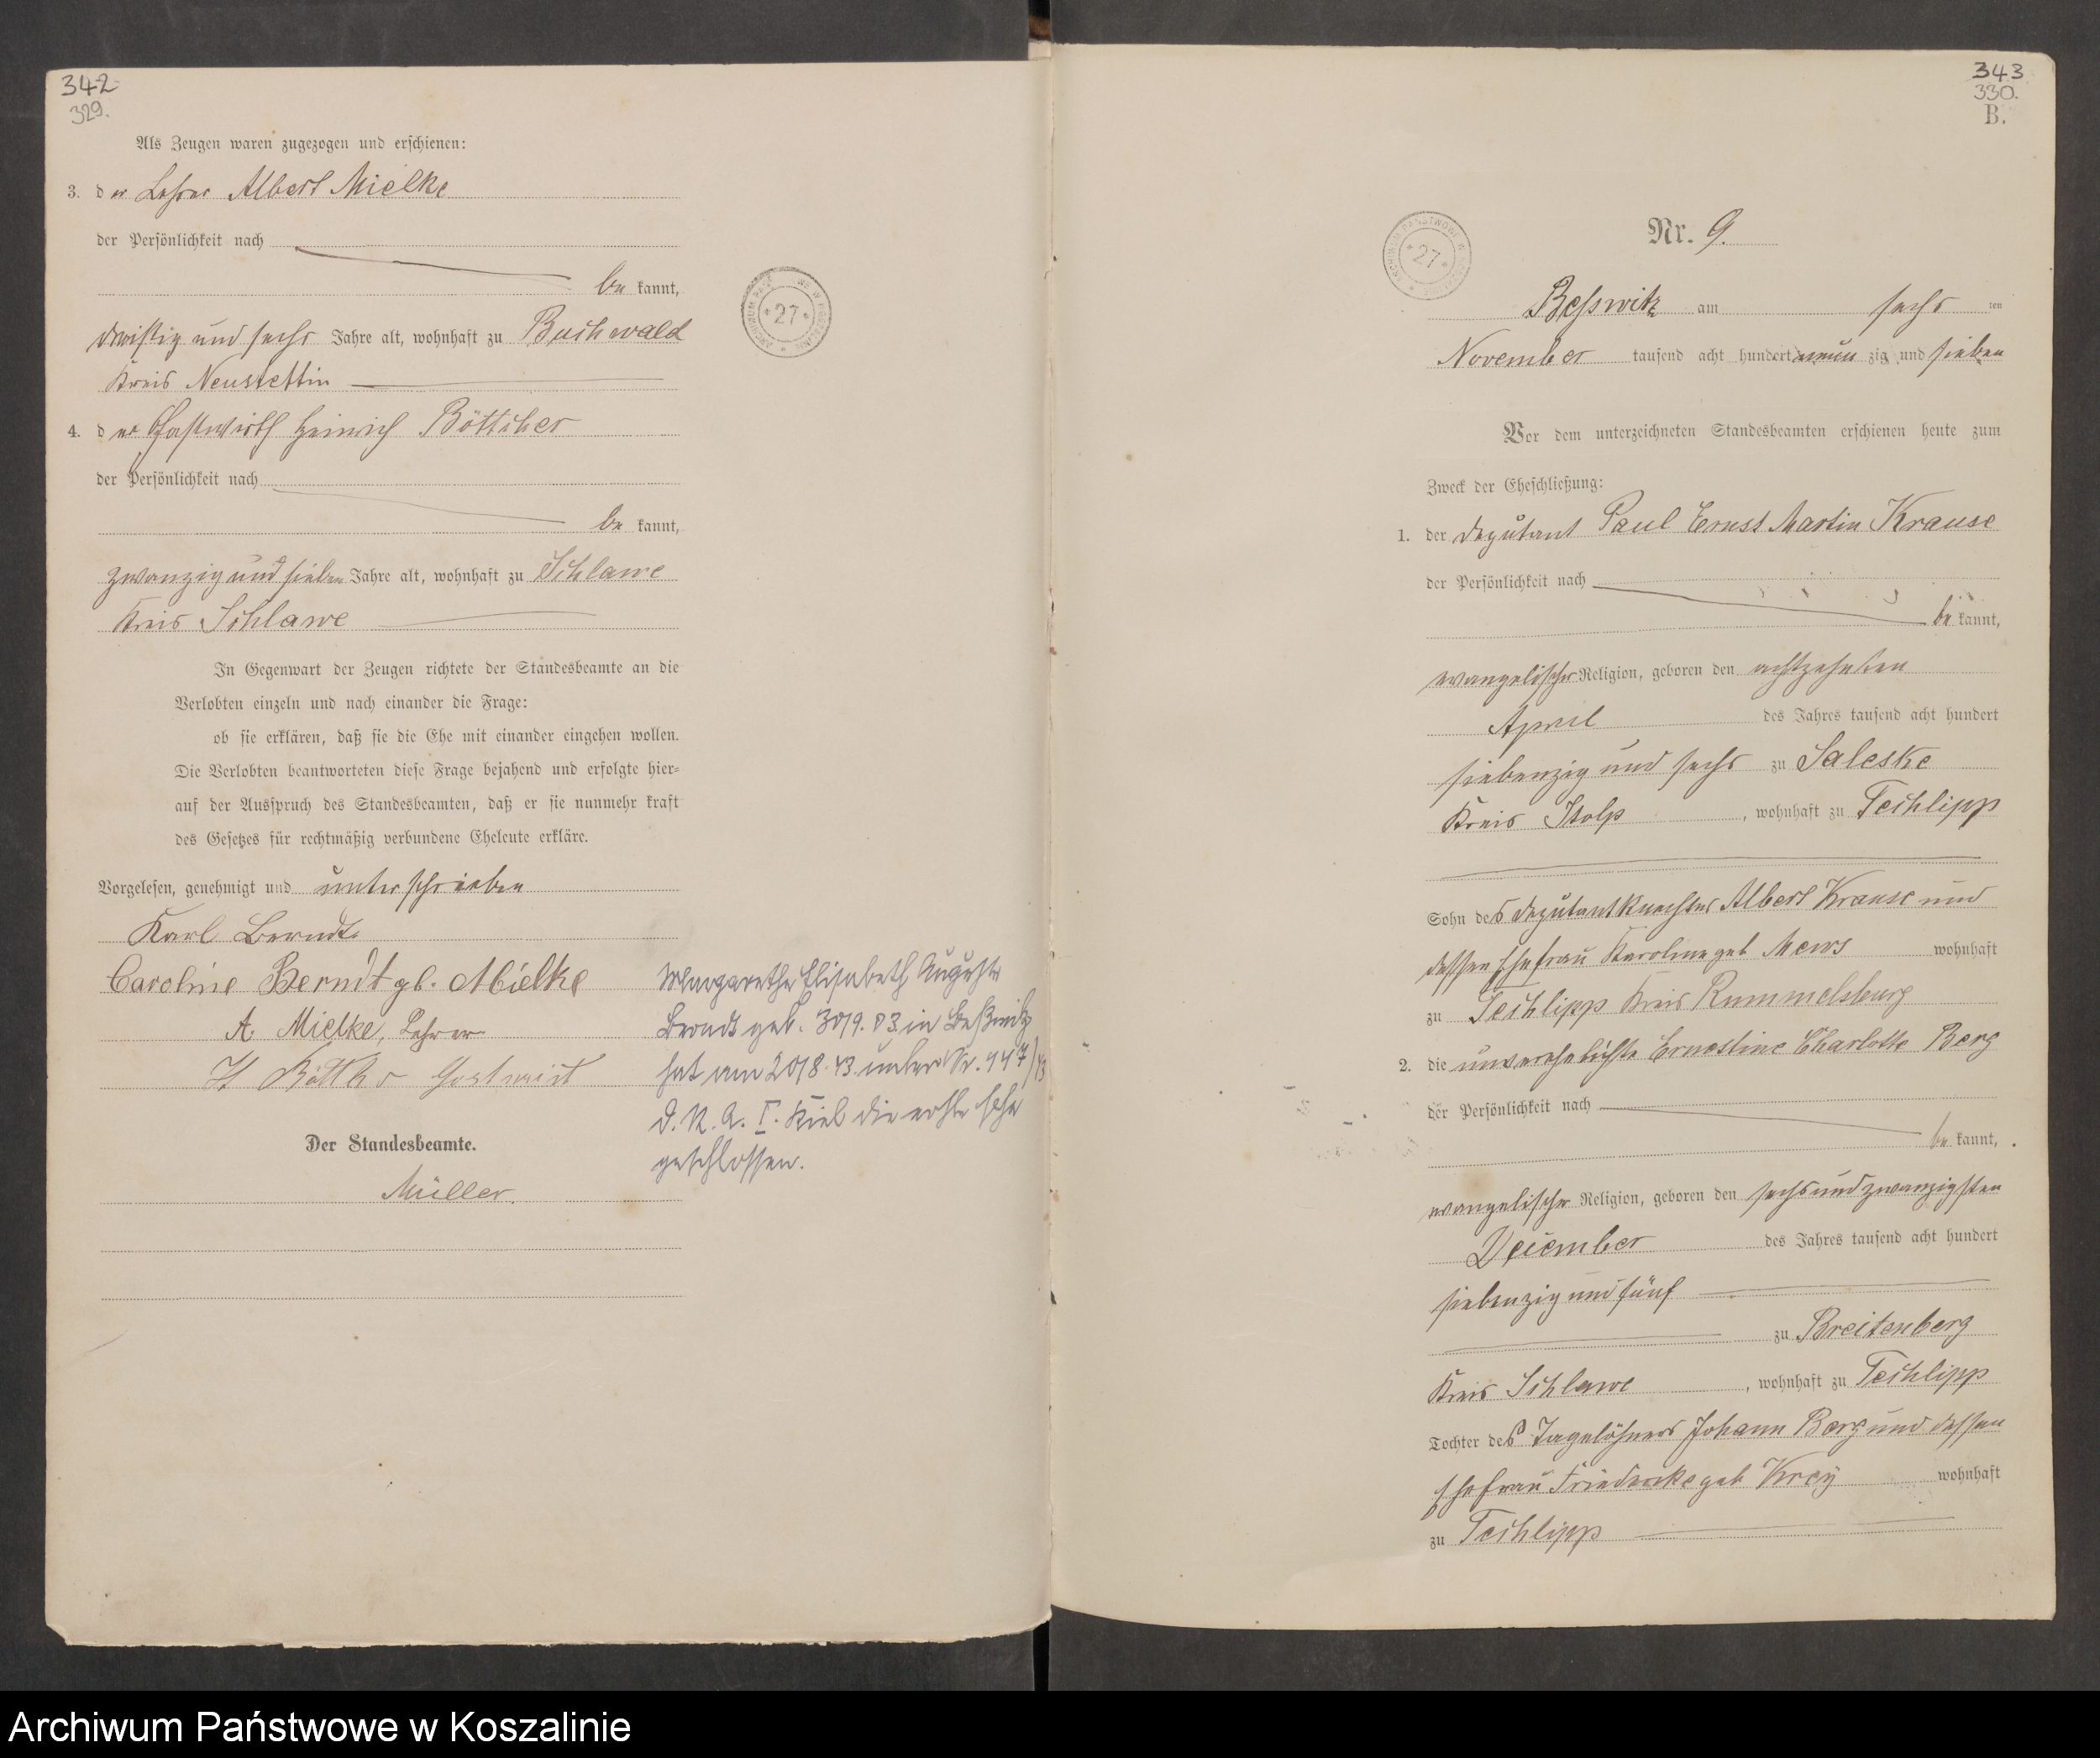 342
329.
Als Zeugen waren zugezogen und erschienen:
3. der Lehrer Albert Mielke
der Persönlichkeit nach
be kannt,
dreißig und sechs Jahre alt, wohnhaft zu Buchwald
Kreis Neustettin
4. der Gastwirth Heinrich Böttcher
der Persönlichkeit nach
be kannt,
zwanzig und sieben Jahre alt, wohnhaft zu Schlawe
Kreis Schlawe
In Gegenwart der Zeugen richtete der Standesbeamte an die
Verlobten einzeln und nach einander die Frage:
ob sie erklären, daß sie die Ehe mit einander eingehen wollen.
Die Verlobten beantworteten diese Frage bejahend und erfolgte hier-
auf der Ausspruch des Standesbeamten, daß er sie nunmehr kraft
des Gesetzes für rechtmäßig verbundene Eheleute erkläre.
Vorgelesen, genehmigt und unterschrieben
Karl Berndt
Caroline Berndt gb. Mielke
A. Mielke, Lehrer
H Böttcher Gastwirt
Der Standesbeamte.
Müller.
Margarethe Elisabeth Auguste
Berndt geb. in Beßwitz
hat am 20/8. 43. unter Nr. 447/43
d. St. A. I. Kiel die erste Ehe
geschlossen.
27
343
330.
B.
27
Nr. 9.
Besswitz am sechs ten
November tausend acht hundert neun zig und sieben
Vor dem unterzeichneten Standesbeamten erschienen heute zum
Zweck der Eheschließung:
1. der Deputant Paul Ernst Martin Krause
der Persönlichkeit nach
be kannt,
evangelischer Religion, geboren den achtzehnten
April des Jahres tausend acht hundert
siebenzig und sechs zu Saleske
Kreis Stolp, wohnhaft zu Techlipp
Sohn des Deputantknechtes Albert Krause und
dessen Ehefrau Karoline geb Mews wohnhaft
zu Techlipp Kreis Rummelsburg
2. die unverehelichte Ernestine Charlotte Berg
der Persönlichkeit nach
be kannt,
evangelischer Religion, geboren den sechsundzwanzigsten
Dezember des Jahres tausend acht hundert
siebenzig und fünf
zu Breitenberg
Kreis Schlawe, wohnhaft zu Techlipp
Tochter des Tagelöhners Johann Berg und dessen
Ehefrau Friederike geb Krey wohnhaft
zu Techlipp
Archiwum Państwowe w Koszalinie